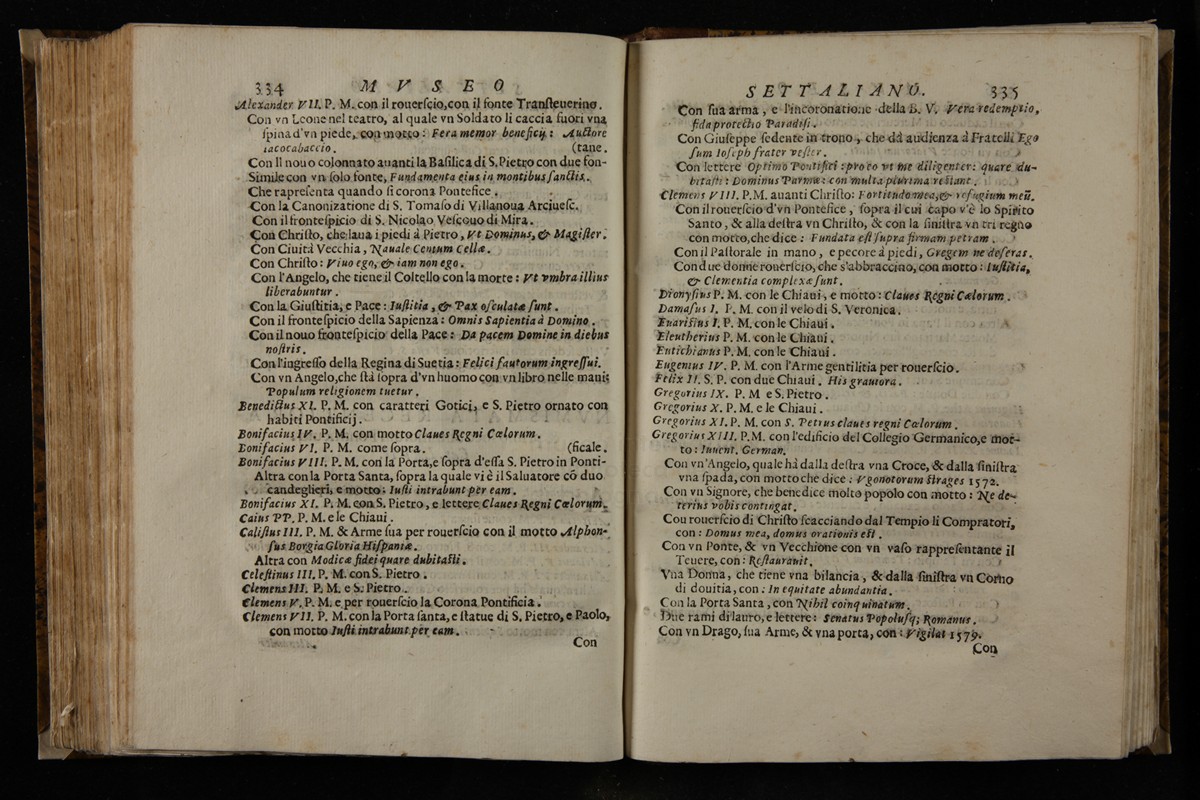 334 MVSEO
Alexander VII. P. M. con il rouerſcio,con il fonte Tranſteuerino.
Con vn Leone nel teatro, al quale vn Soldato li caccia fuori vna
ſpina d'vn piede, con motto : Fera memor beneficij. : Auctore
iacocabaccio. (tane.
Con Il nouo colonnato auanti la Baſilica di S. Pietro con due fon-
Simile con vn ſolo fonte, Fundamenta eius in montibus ſanctis.
Che rapreſenta quando ſi corona Pontefice .
Con la Canonizatione di S. Tomaſo di Villanoua Arciueſc.
Con il fronteſpicio di S. Nicolao Veſcouo di Mira.
Con Chriſto, che laua i piedi à Pietro , Vt Dominus, & Magiſter.
Con Ciuità Vecchia , Nauale Centum Cellæ.
Con Chriſto: Viuo ego, & iam non ego.
Con l'Angelo, che tiene il Coltello con la morte : Vt vmbra illius
liberabuntur.
Con la Giuſtitia, e Pace : Iuſtitia , & Pax oſculatæ ſunt.
Con il fronteſpicio della Sapienza : Omnis Sapientia à Domino .
Con il nouo fronteſpicio della Pace : Da pacem Domine in diebus
noſtris.
Con l'ingreſſo della Regina di Suetia : Felici fautorum ingreſſui.
Con vn Angelo,che ſtà ſopra d'vn huomo con vn libro nelle mani:
Populum religionem tuetur.
Benedictus XI. P. M. con caratteri Gotici, e S. Pietro ornato con
habiti Pontificij.
Bonifacius IV. P. M. con motto Claues Regni Cœlorum.
Bonifacius VI. P. M. come ſopra. (ficale.
Bonifacius VIII. P. M. con la Porta,e ſopra d'eſſa S. Pietro in Ponti-
Altra con la Porta Santa, ſopra la quale vi è il Saluatore cō duo
candeglieri, e motto: Iuſti intrabunt per eam.
Bonifacius XI. P. M. con S. Pietro , e lettere Claues Regni Cœlorum.
Caius PP. P. M. e le Chiaui.
Caliſtus III. P. M. & Arme ſua per rouerſcio con il motto Alphon-
ſus Borgia Gloria Hiſpaniæ.
Altra con Modicæ fidei quare dubitaſti.
Celeſtinus III. P. M. con S. Pietro .
Clemens III. P. M. e S. Pietro .
Clemens V. P. M. e per rouerſcio la Corona Pontificia.
Clemens VII. P. M. con la Porta ſanta, e ſtatue di S. Pietro, e Paolo,
con motto Iuſti intrabunt per eam.
Con
SETTALIANO. 335
Con ſua arma , e l'incoronatione della B. V. Vera redemptio,
fida protectio Paradiſi.
Con Giuſeppe ſedente in trono , che dà audienza à Fratelli Ego
ſum Ioſeph frater veſter.
Con lettere Optimo Pontifici : pro eo vt me diligenter: quare du-
bitaſti : Dominus Parmæ: con multa plurima reſtant.
Clemens VIII. P.M. auanti Chriſto: Fortitudo mea,& refugium meū.
Con il rouerſcio d'vn Pontefice , ſopra il cui capo v'è lo Spirito
Santo , & alla deſtra vn Chriſto, & con la ſiniſtra vn tri regno
con motto,che dice : Fundata eſt ſupra firmam petram.
Con il Paſtorale in mano , e pecore à piedi, Gregem ne deſeras.
Con due donne rouerſcio, che s'abbraccino, con motto : Iuſtitia,
& Clementia complexæ ſunt.
Dionyſius P. M. con le Chiaui , e motto : Claues Regni Cælorum.
Damaſus I. P. M. con il velo di S. Veronica.
Euariſtus I. P. M. con le Chiaui.
Eleutherius P. M. con le Chiaui.
Eutichianus P. M. con le Chiaui.
Eugenius IV. P. M. con l'Arme gentilitia per rouerſcio.
Felix II. S. P. con due Chiaui. His grauiora.
Gregorius IX. P. M e S. Pietro.
Gregorius X. P. M. e le Chiaui.
Gregorius XI. P. M. con S. Petrus claues regni Cœlorum.
Gregorius XIII. P.M. con l'edificio del Collegio Germanico,e mot-
to : Iuuent. German.
Con vn'Angelo, quale hà dalla deſtra vna Croce, & dalla ſiniſtra
vna ſpada, con motto che dice : Vgonotorum ſtrages 1572.
Con vn Signore, che benedice molto popolo con motto : Ne de-
terius vobis contingat.
Cou rouerſcio di Chriſto ſcacciando dal Tempio li Compratori,
con : Domus mea, domus orationis eſt.
Con vn Ponte, & vn Vecchione con vn vaſo rappreſentante il
Teuere, con : Reſtaurauit.
Vna Donna, che tiene vna bilancia , & dalla ſiniſtra vn Corno
di douitia, con : In equitate abundantia.
Con la Porta Santa , con Nihil coinquinatum.
Due rami di lauro, e lettere: Senatus Populuſq; Romanus.
Con vn Drago, ſua Arme, & vna porta, con : Vigilat 1579.
Con